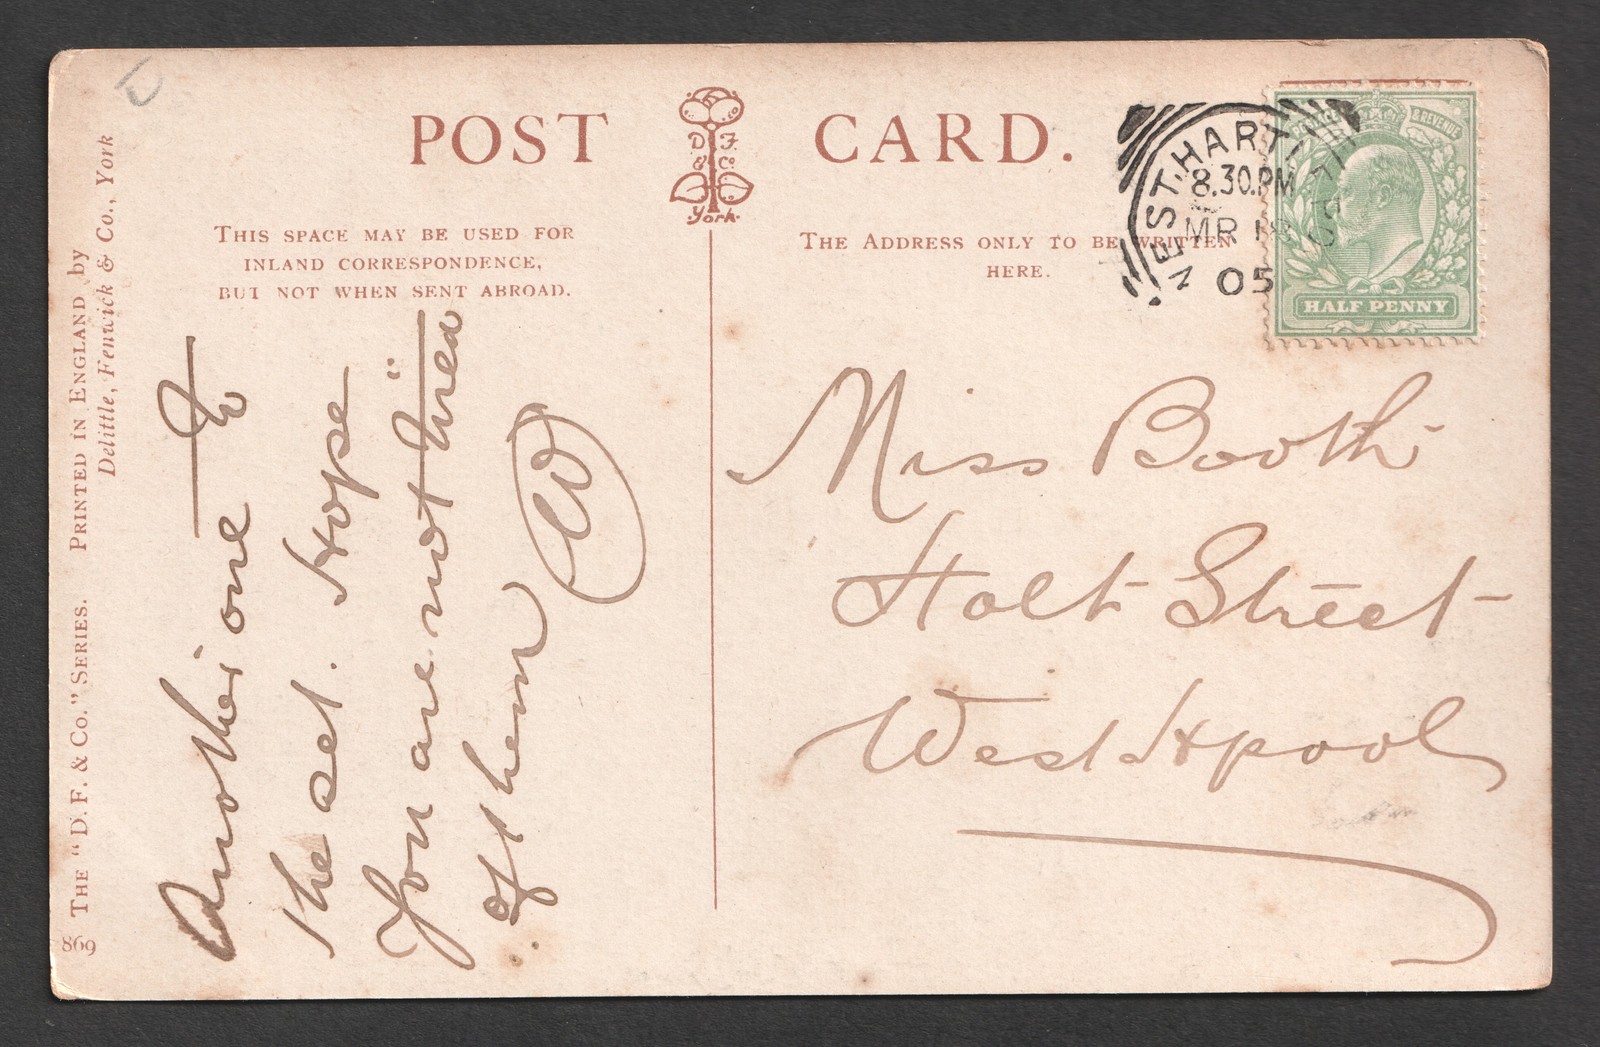 POST CARD.
D F
& Co.
York.
THIS SPACE MAY BE USED FOR
INLAND CORRESPONDENCE,
BUT NOT WHEN SENT ABROAD.
THE ADDRESS ONLY TO BE WRITTEN
HERE.
WEST HARTLEPOOL
8.30.PM
MR 18
05
POSTAGE & REVENUE
HALF PENNY
Another one to
the set. Hope
you are not "tired"
of them
Miss Booth
Holt Street
West H'pool
869 THE "D. F. & Co." SERIES. PRINTED IN ENGLAND by
Delittle, Fenwick & Co., York